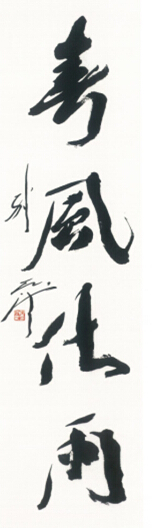 春風化雨
刘